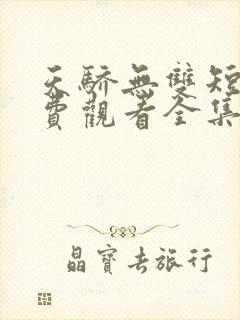 天驕無雙短
費觀看全集
晶寶去旅行